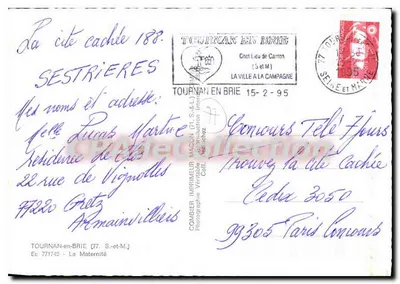 La cité cachée 188.
SESTRIERES
Mes noms et adresse:
Melle Martine
Résidence
22 rue de Vignolles
77220 Gretz
Armainvilliers
TOURNAN-en-BRIE (77. S.-et-M.)
Ec 771740 - La Maternité
COMBIER IMPRIMEUR MACON (71. S.-&-L.)
TOURNAN EN BRIE
(S et M)
LA VILLE A LA CAMPAGNE
TOURNAN EN BRIE 15-2-95
SEINE ET MARNE
Concours Télé 7 jours
Trouvez la cité cachée
Cedex 3050
99305 Paris Concours